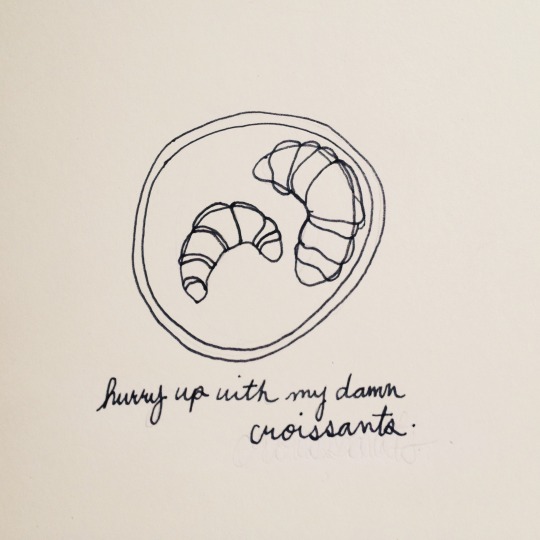 hurry up with my damn
croissants.